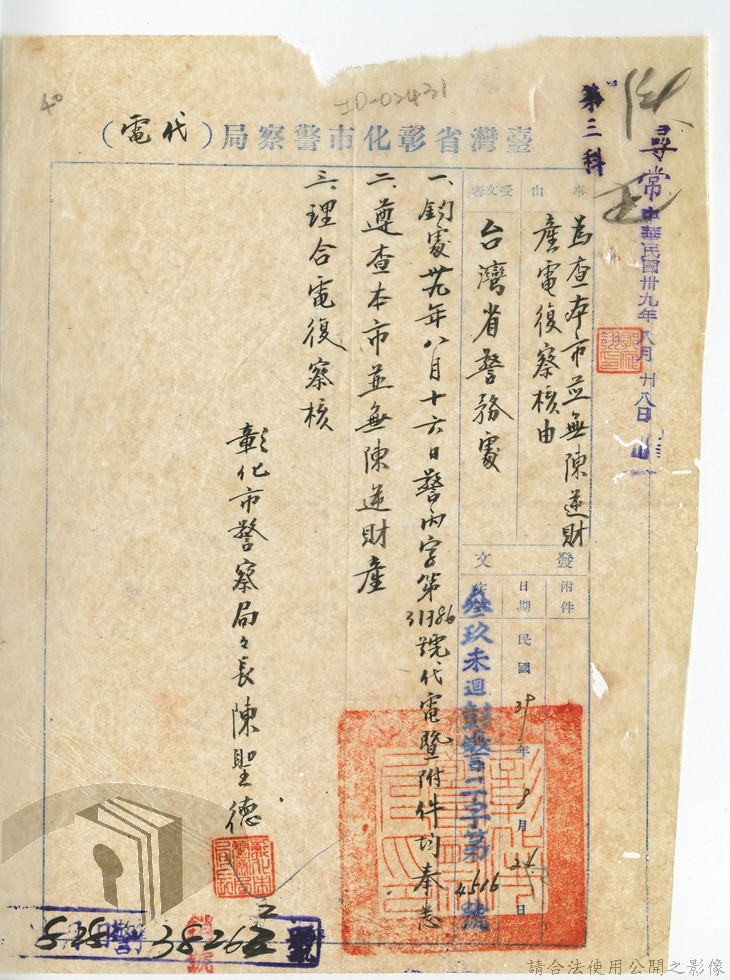 40
10-02431
第三科
尋常
中華民國卅九年八月廿八日
臺灣省彰化市警察局（代電）
事由
為查本市並無陳逆財
產電復察核由
受文者
台灣省警務處
發文
附件
日期
民國39年8月26日
字號
叁玖未迴彰警二字第4516號
一、鈞處卅九年八月十六日警丙字第31786號代電暨附件均奉悉
二、遵查本市並無陳逆財產
三、理合電復察核
彰化市警察局々長陳聖德
8 28
警
38262
號
請合法使用公開之影像